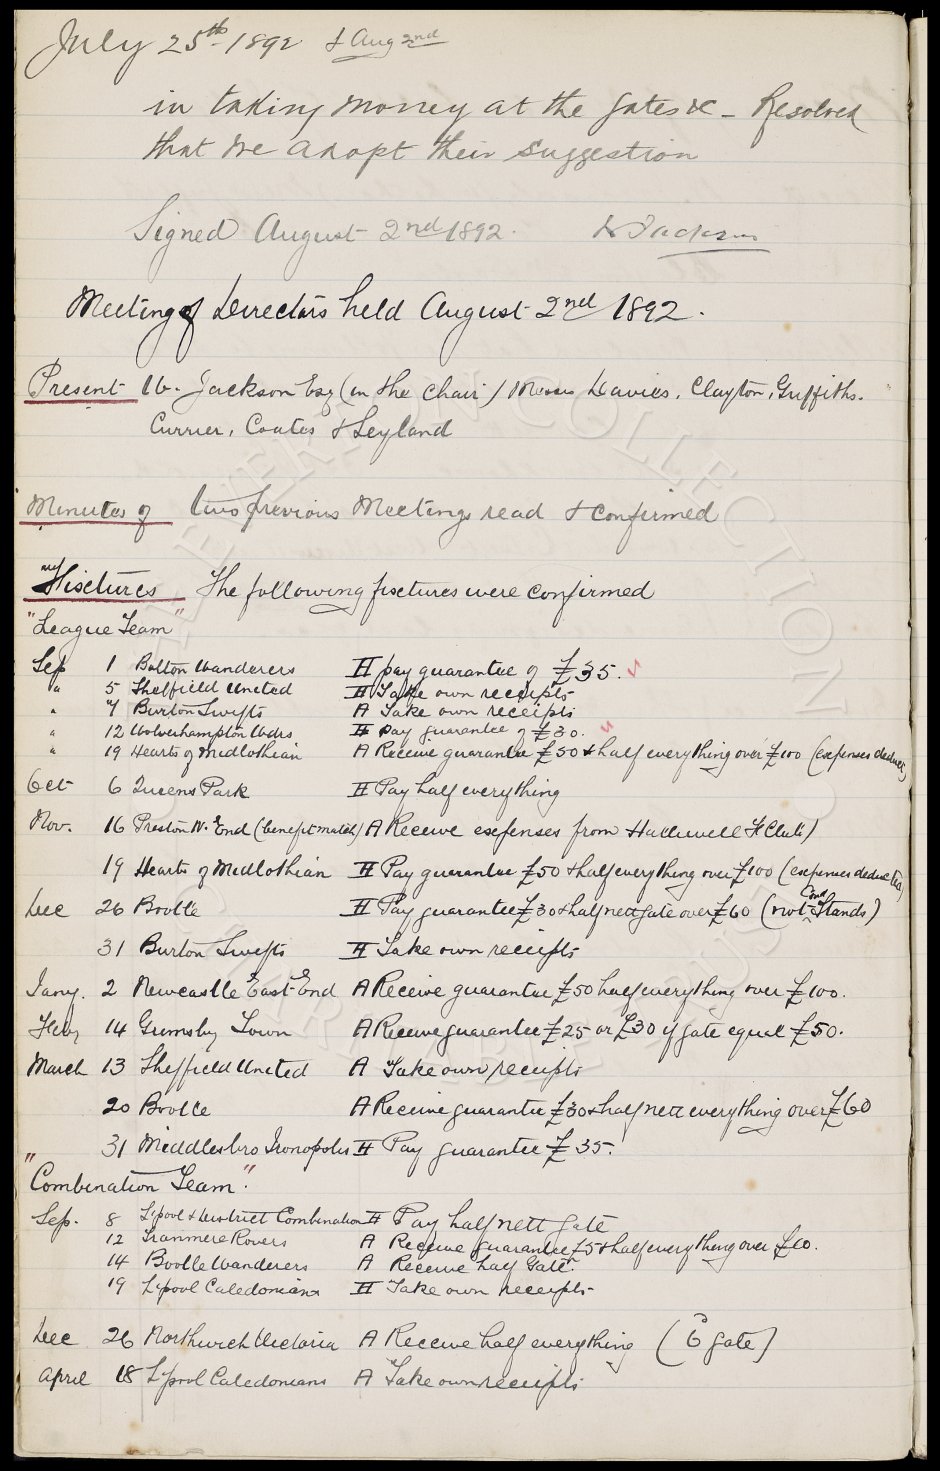 July 25th 1892 & Aug 2nd
in taking money at the gates &c - Resolved
that we adopt their suggestion
Signed August 2nd 1892. W Jackson
Meeting of Directors held August 2nd 1892.
Present W. Jackson Esq (in the chair) Messrs Davies, Clayton, Griffiths.
Currier, Coates & Leyland
Minutes of two previous Meetings read & confirmed
Fixtures The following fixtures were confirmed
"League Team"
Sep 1 Bolton Wanderers H pay guarantee of £35.
" 5 Sheffield United H Take own receipts
" 7 Burton Swifts A Take own receipts
" 12 Wolverhampton Wdrs H Pay guarantee of £30.
" 19 Hearts of Midlothian A Receive guarantee £50 & half everything over £100 (expenses deducted)
Oct 6 Queens Park H Pay half everything
Nov. 16 Preston N. End (benefit match) A Receive expenses from Halliwell F Club)
19 Hearts of Midlothian H Pay guarantee £50 & half everything over £100 (expenses deducted)
Dec 26 Bootle H Pay guarantee £30 & half nett gate over £60 (not Stands)
31 Burton Swifts H Take own receipts
Jany. 2 Newcastle East End A Receive guarantee £50 half everything over £100.
Feby 14 Grimsby Town A Receive guarantee £25 or £30 if gate equal £50.
March 13 Sheffield United A Take own receipts
20 Bootle A Receive guarantee £30 & half nett everything over £60
31 Middlesbro Ironopolis H Pay guarantee £35.
"Combination Team."
Sep. 8 L'pool & District Combination H Pay half nett gate
12 Tranmere Rovers A Receive guarantee £5 & half everything over £10.
14 Bootle Wanderers A Receive half Gate
19 L'pool Caledonians H Take own receipts
Dec 26 Northwich Victoria A Receive half everything (6 gate)
April 18 L'pool Caledonians A Take own receipts